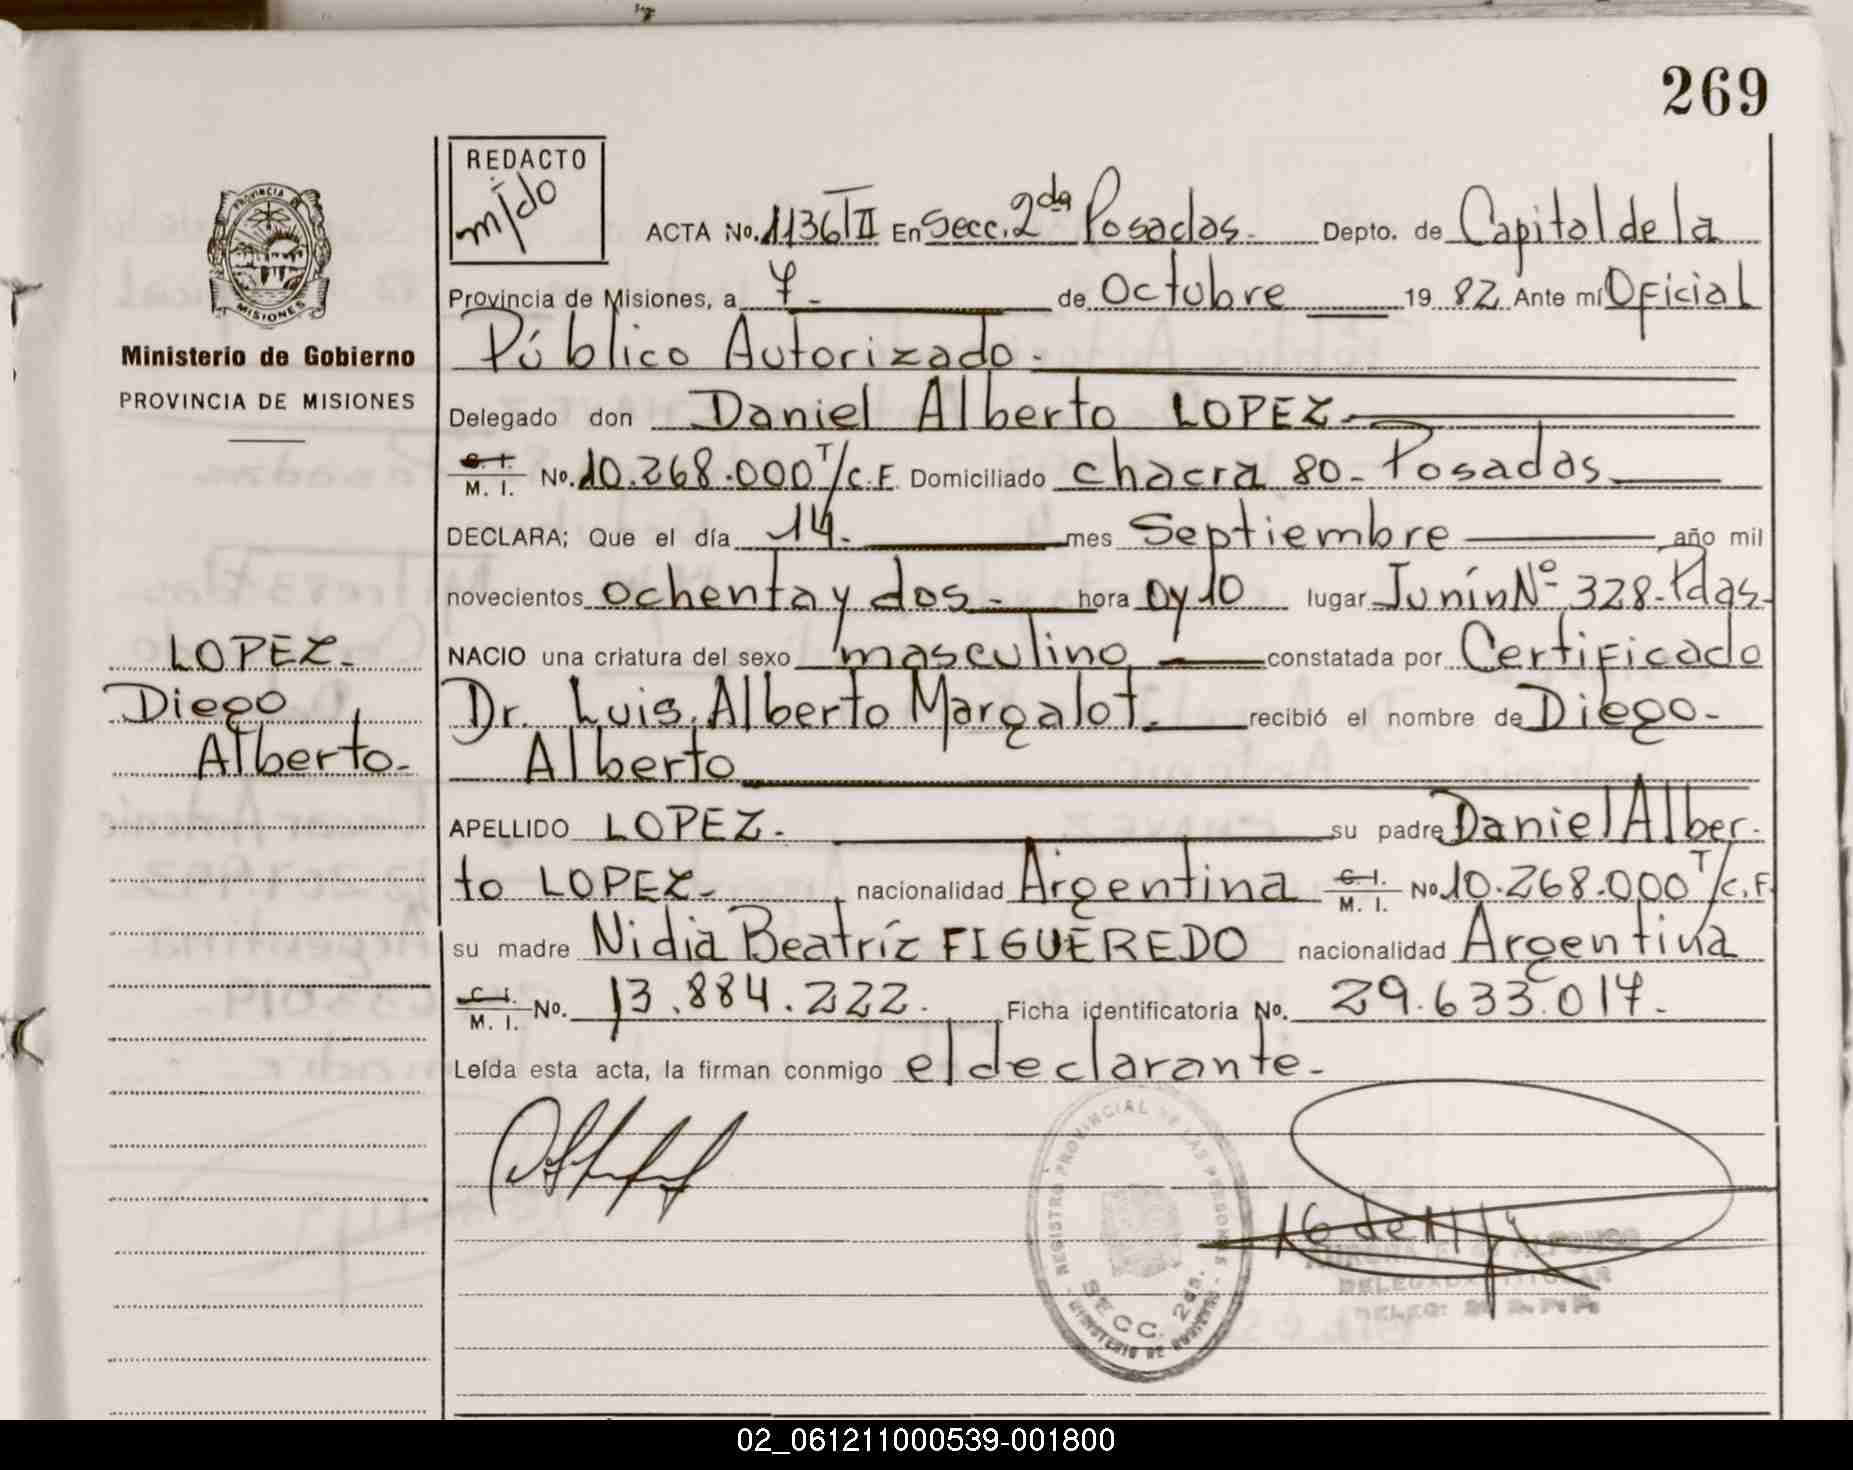 269
REDACTO
m/do
PROVINCIA DE
MISIONES
Ministerio de Gobierno
PROVINCIA DE MISIONES
LOPEZ.-
Diego
Alberto.-
ACTA No. 1136 TII En Secc. 2da Posadas.- Depto. de Capital de la
Provincia de Misiones, a 7.- de Octubre 19 82 Ante mí Oficial
Público Autorizado.-
Delegado don Daniel Alberto LOPEZ.-
C. I. M. I. No. 10.268.000 T/C.F. Domiciliado chacra 80- Posadas
DECLARA; Que el día 14.- mes Septiembre año mil
novecientos ochenta y dos.- hora 0y10 lugar Junín Nº 328-Pdas-
NACIO una criatura del sexo masculino constatada por Certificado
Dr. Luis Alberto Margalot.- recibió el nombre de Diego-
Alberto
APELLIDO LOPEZ.- su padre Daniel Alber-
to LOPEZ.- nacionalidad Argentina C. I. M. I. No. 10.268.000 T/C.F.
su madre Nidia Beatríz FIGUEREDO nacionalidad Argentina
C. I. M. I. No. 13.884.222.- Ficha identificatoria No. 29.633.017.-
Leída esta acta, la firman conmigo el declarante.-
REGISTRO PROVINCIAL DE LAS PERSONAS
SECC. 2da.
MINISTERIO DE GOBIERNO
ALFONSO
DELEGADA TITULAR
02_061211000539-001800